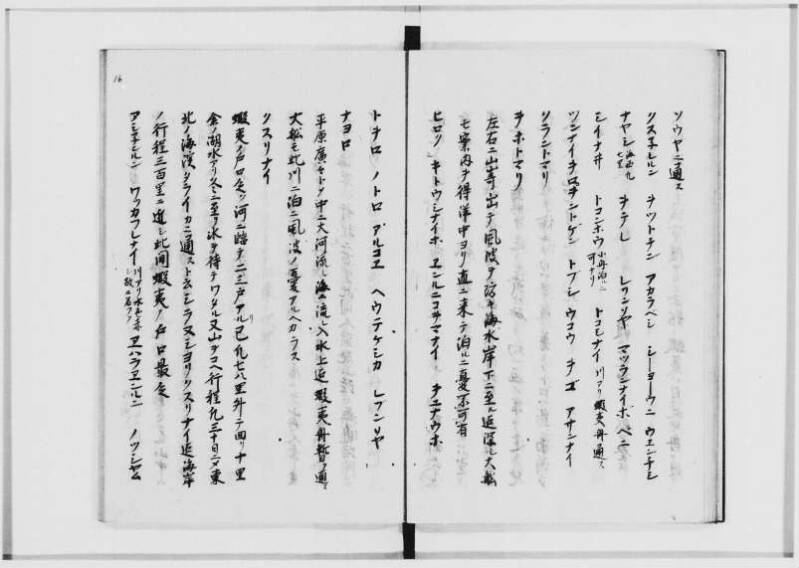 ソウヤニ通ス
クスネルン ヲツトチン アカラベシ シーヨーウニ ウエンチシ
ナヤシ 海岸凡七里 ヲテレ レウンソヤ マツランナイボ ベニ
シイナ井 トコンホウ 小舟泊ニ可ナリ トコシナイ 川アリ蝦夷舟通ス
ツンナイチロチントゲン トブシ ウコウ チゴ アサンナイ
ソラントマリ
ヲホトマリ
左右ニ山 出テ風波ヲ防キ海水岸下ニ至ル迄深シ大船
モ案内ヲ得洋中ヨリ直ニ来テ泊ルニ憂不可有
ヒロツ キトウシナイホ エンルニコヲマナイ チエナウホ
トチロ ノトロ アルコエ ヘウテケシカ レフンソヤ
ナヨロ
平原廣 トノ中ニ大河流レ海ニ流レ入水上迄蝦夷舟 ノ通ス
大船モ此川ニ泊ニ風波ノ憂アルヘカラス
クスリナイ
蝦夷ノ戸口 河ニ臨テ二三戸アル已凡七八里外ニ回リ十里
余ノ湖水アリ冬ニ至リ氷ヲ待テワタル又山ヲコヘ行程凡三十日ニメ東
北ノ海濱タライカニ通スト云シラヌシヨリクスリナイ迄海岸
ノ行程三百里ニ近シ此間蝦夷ノ戸口最 
アシネルン ワツカフレナイ 川アリ水赤シ故ニ名ツク ヱハラエンルン ノツシヤム
16